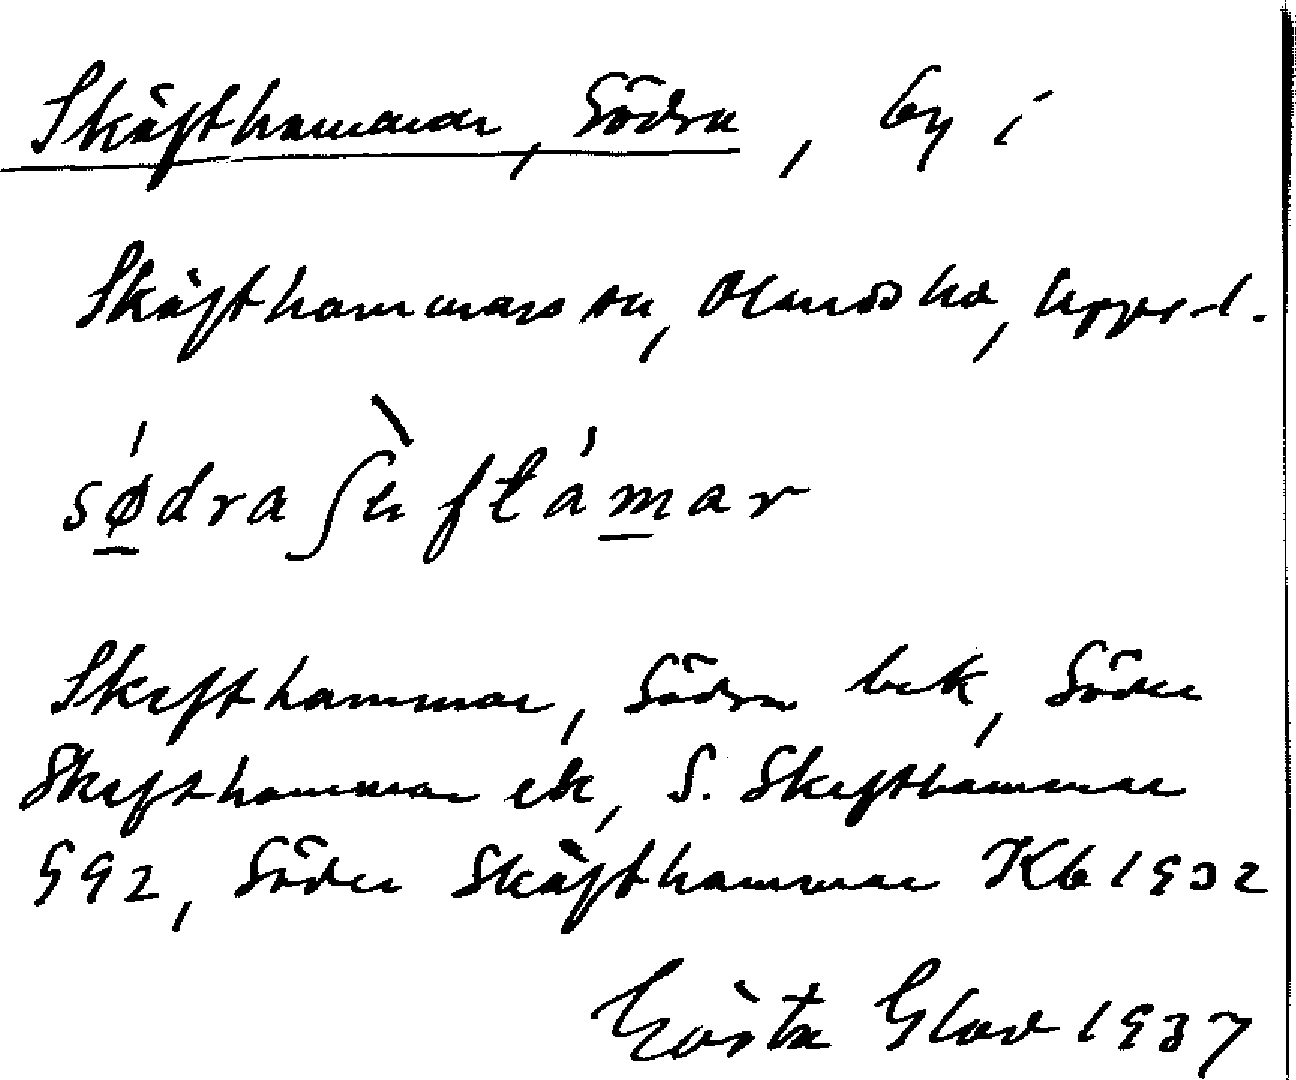 Skäfthammar, Södra, by i
Skäfthammars sn, Olands hd, Uppsl.
sødra ʃæftámar
Skefthammar, Södra bek, Söder
Skefthammar ek, S. Skefthammar
G92, Söder Skäfthammar Kb 1932
Gösta Glav 1937